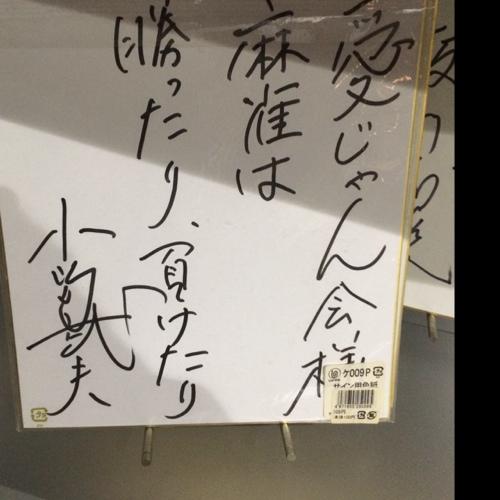 愛じゃん会様
麻雀は
勝ったり、負けたり
小
夫
ケ009P
サイン用色紙